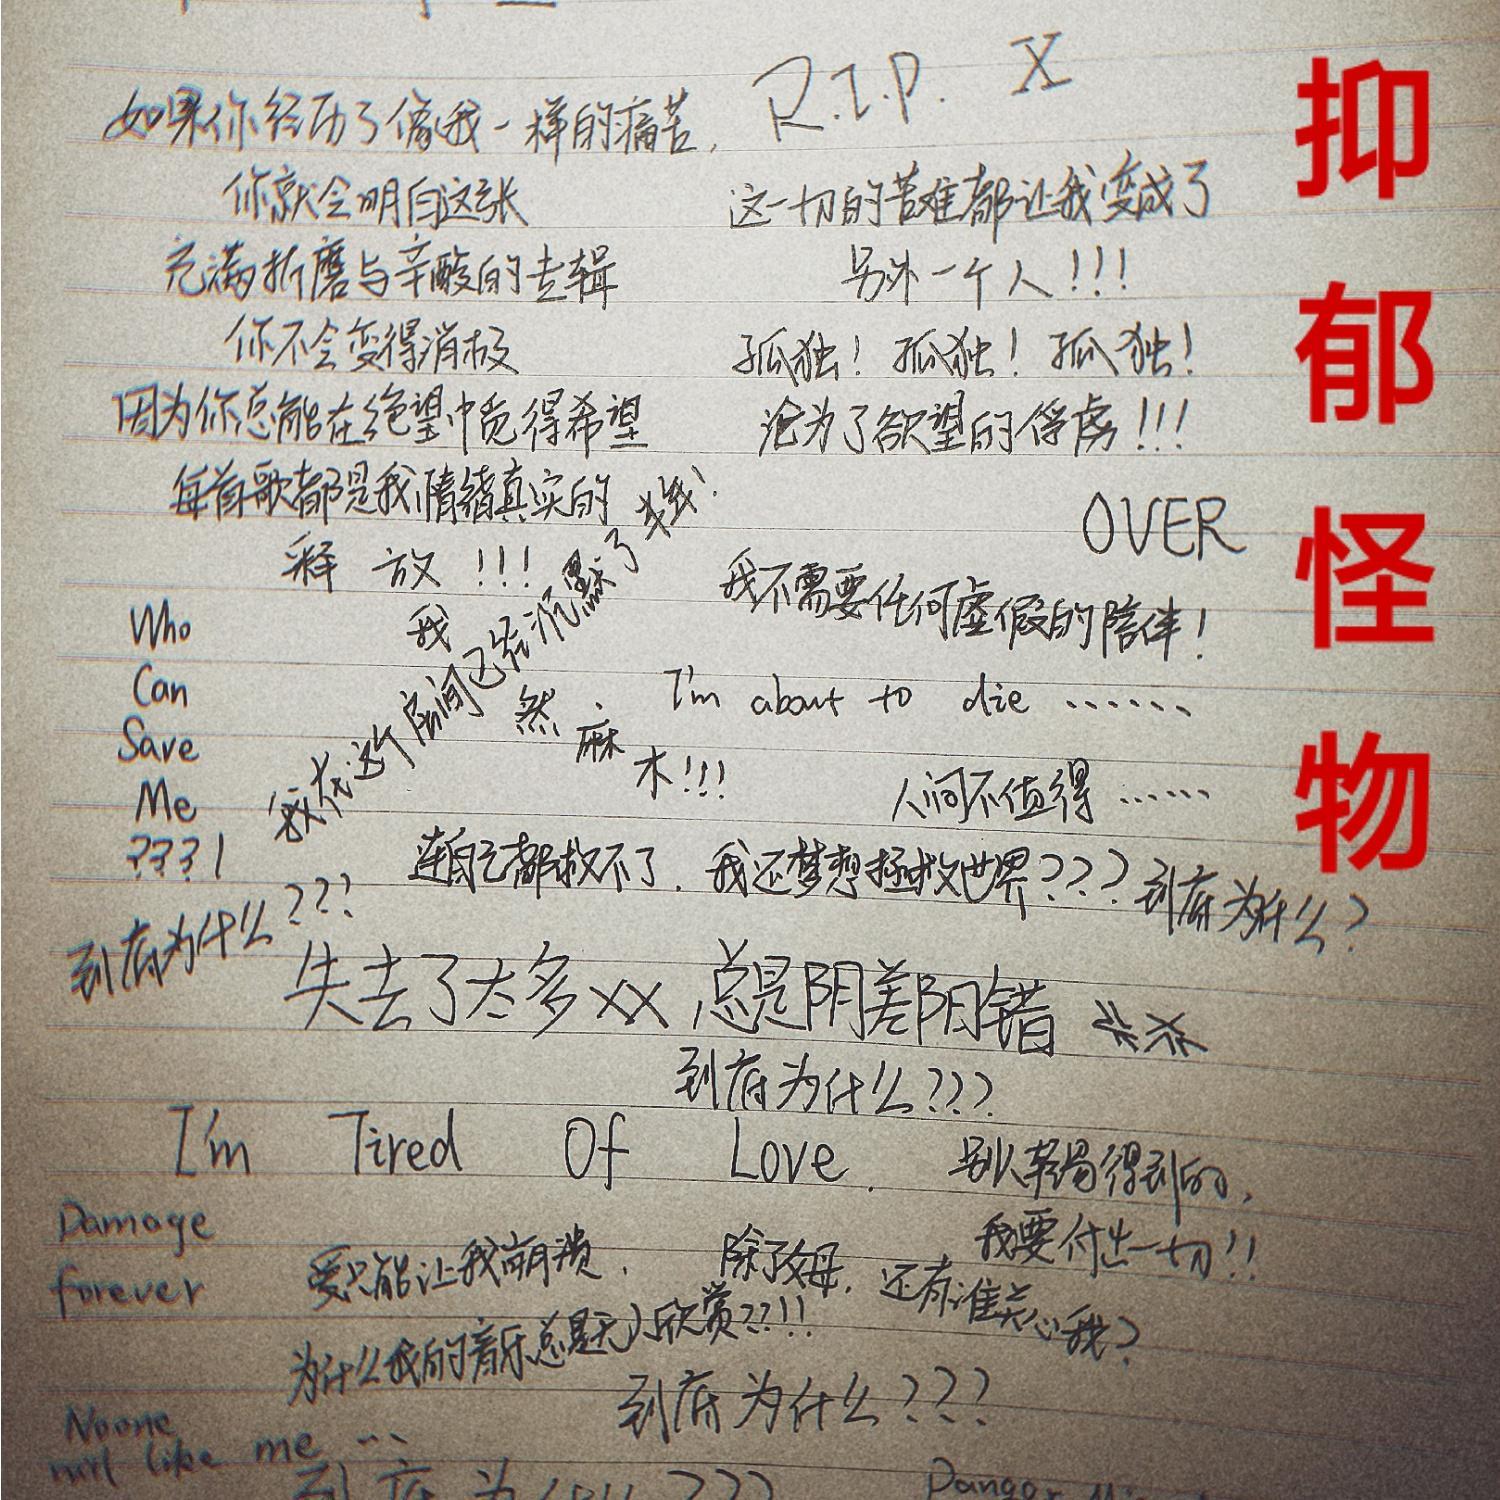 R.I.P. X
如果你经历了像我一样的痛苦,
你就会明白这张
充满折磨与辛酸的专辑
你不会变得消极
因为你总能在绝望中觅得希望
每首歌都是我情绪真实的
释放!!!
这一切的苦难都让我变成了
另外一个人!!!
孤独!孤独!孤独!
沦为了欲望的俘虏!!!
OVER
我不需要任何虚假的陪伴!
I'm about to die ......
人间不值得 ......
Who
Can
Save
Me
???!
我在这个房间已经沉默了
我
然
麻
木!!!
连自己都救不了,我还梦想拯救世界???到底为什么?
到底为什么???
失去了太多xx,总是阴差阳错
到底为什么???
I'm Tired Of Love.
别人轻易得到的,
我要付出一切!!
Damage
forever
爱只能让我崩溃,
除了父母,还有谁关心我?
为什么我的音乐总是无人欣赏??!!
到底为什么???
Noone
like me ...
到底为什么???
抑郁怪物